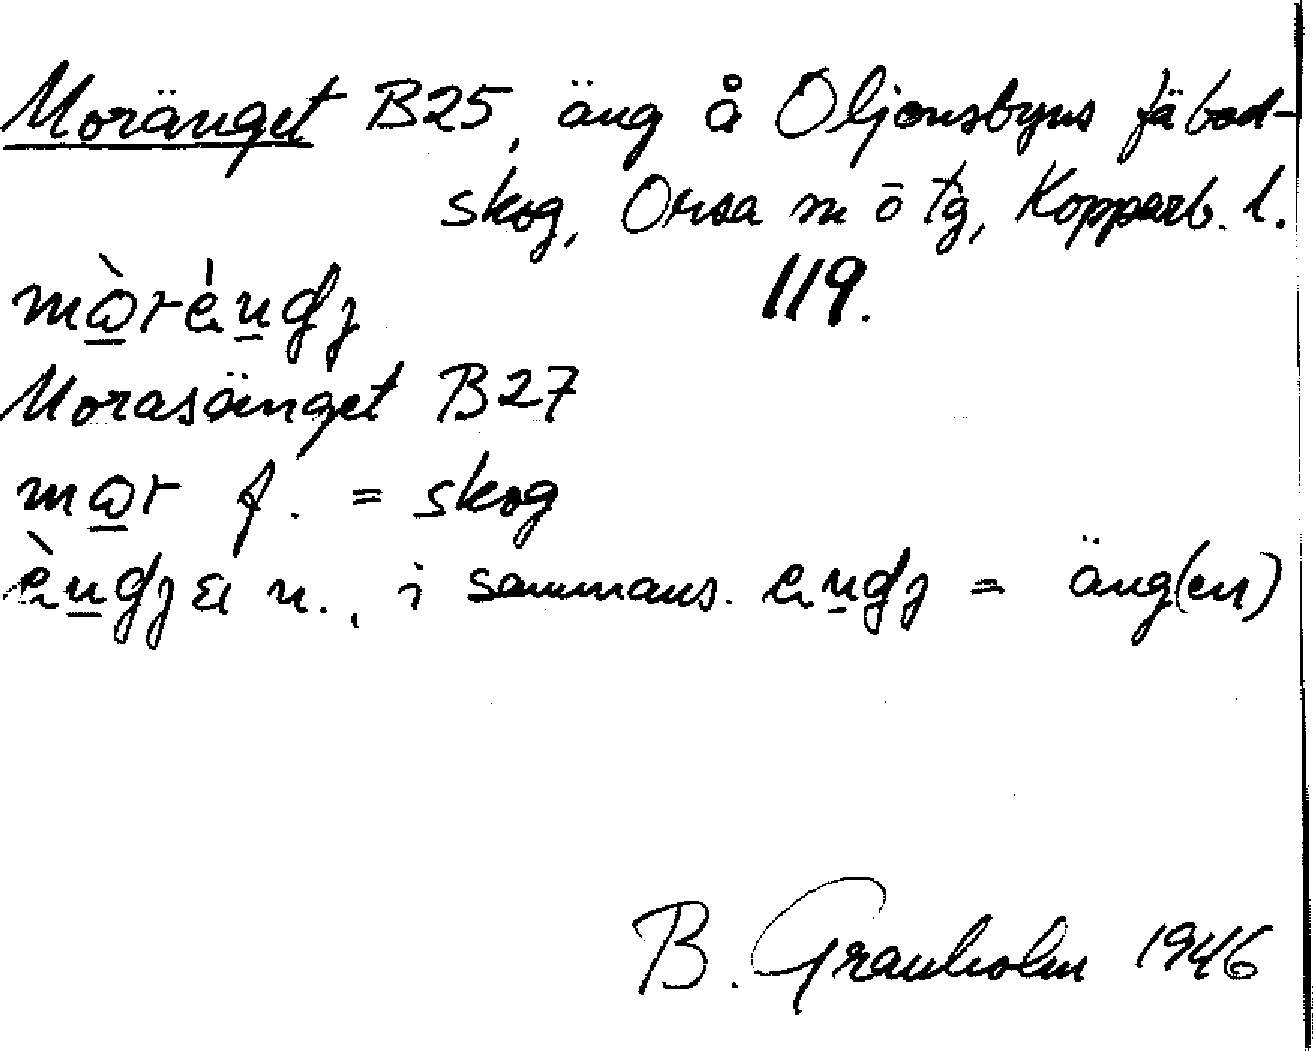 Moränget B25, äng å Oljonsbyns fäbod-
skog, Orsa m ö tg, Kopparb. l.
119.
Morasänget B27
f. = skog
n., i sammans. = äng(en)
B. Granholm 1946